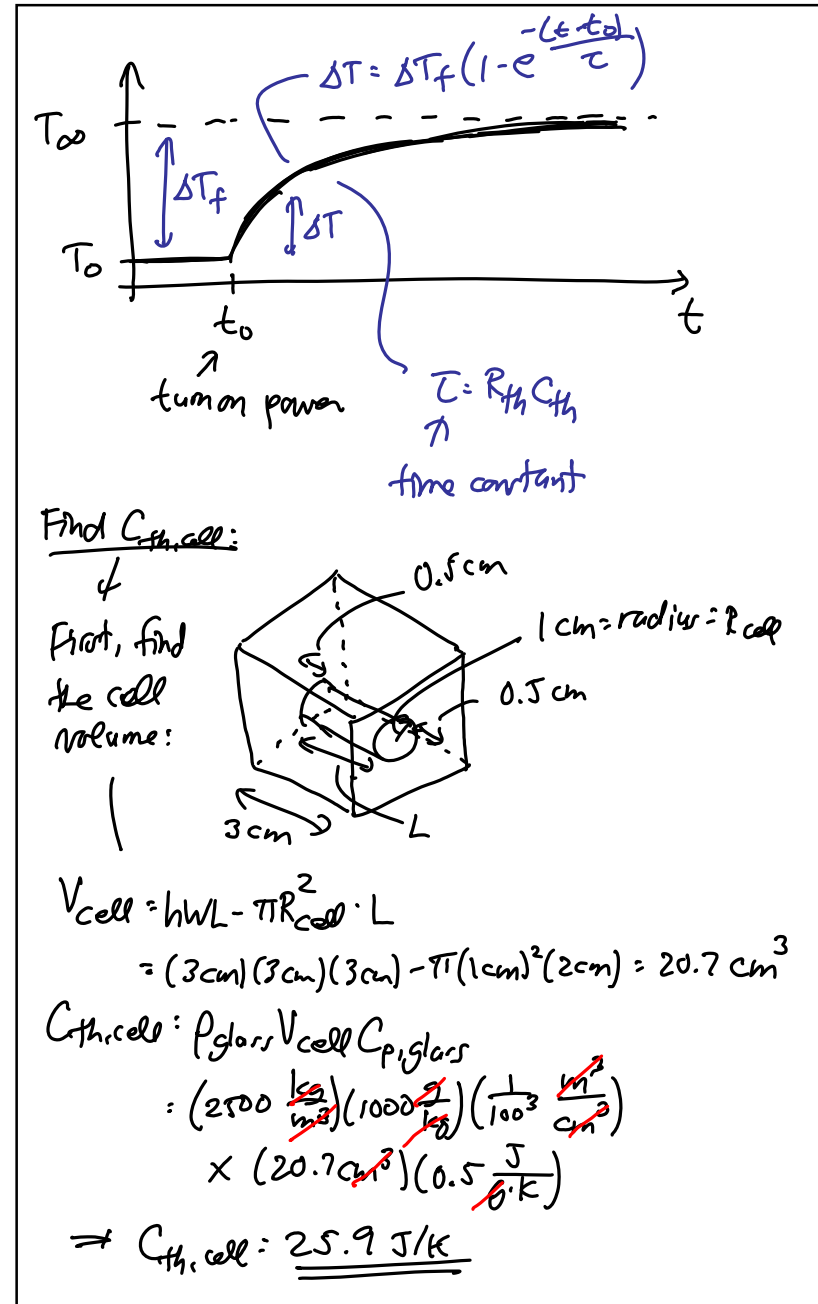 ΔT = ΔT_f (1 - e^{-(t-t₀)/τ})
T∞
ΔT_f
ΔT
T₀
t₀
t
turn on power
τ = R_th C_th
time constant
Find C_th,cell:
First, find
the cell
volume:
0.5 cm
1 cm = radius = R_cell
0.5 cm
3 cm
L
V_cell = hWL - πR_cell² · L
= (3cm)(3cm)(3cm) - π(1cm)²(2cm) = 20.7 cm³
C_th,cell = ρ_glass V_cell C_p,glass
= (2500 kg/m³)(1000 g/kg)(1/100³ m³/cm³)
× (20.7 cm³)(0.5 J/g·K)
⇒ C_th,cell = 25.9 J/K